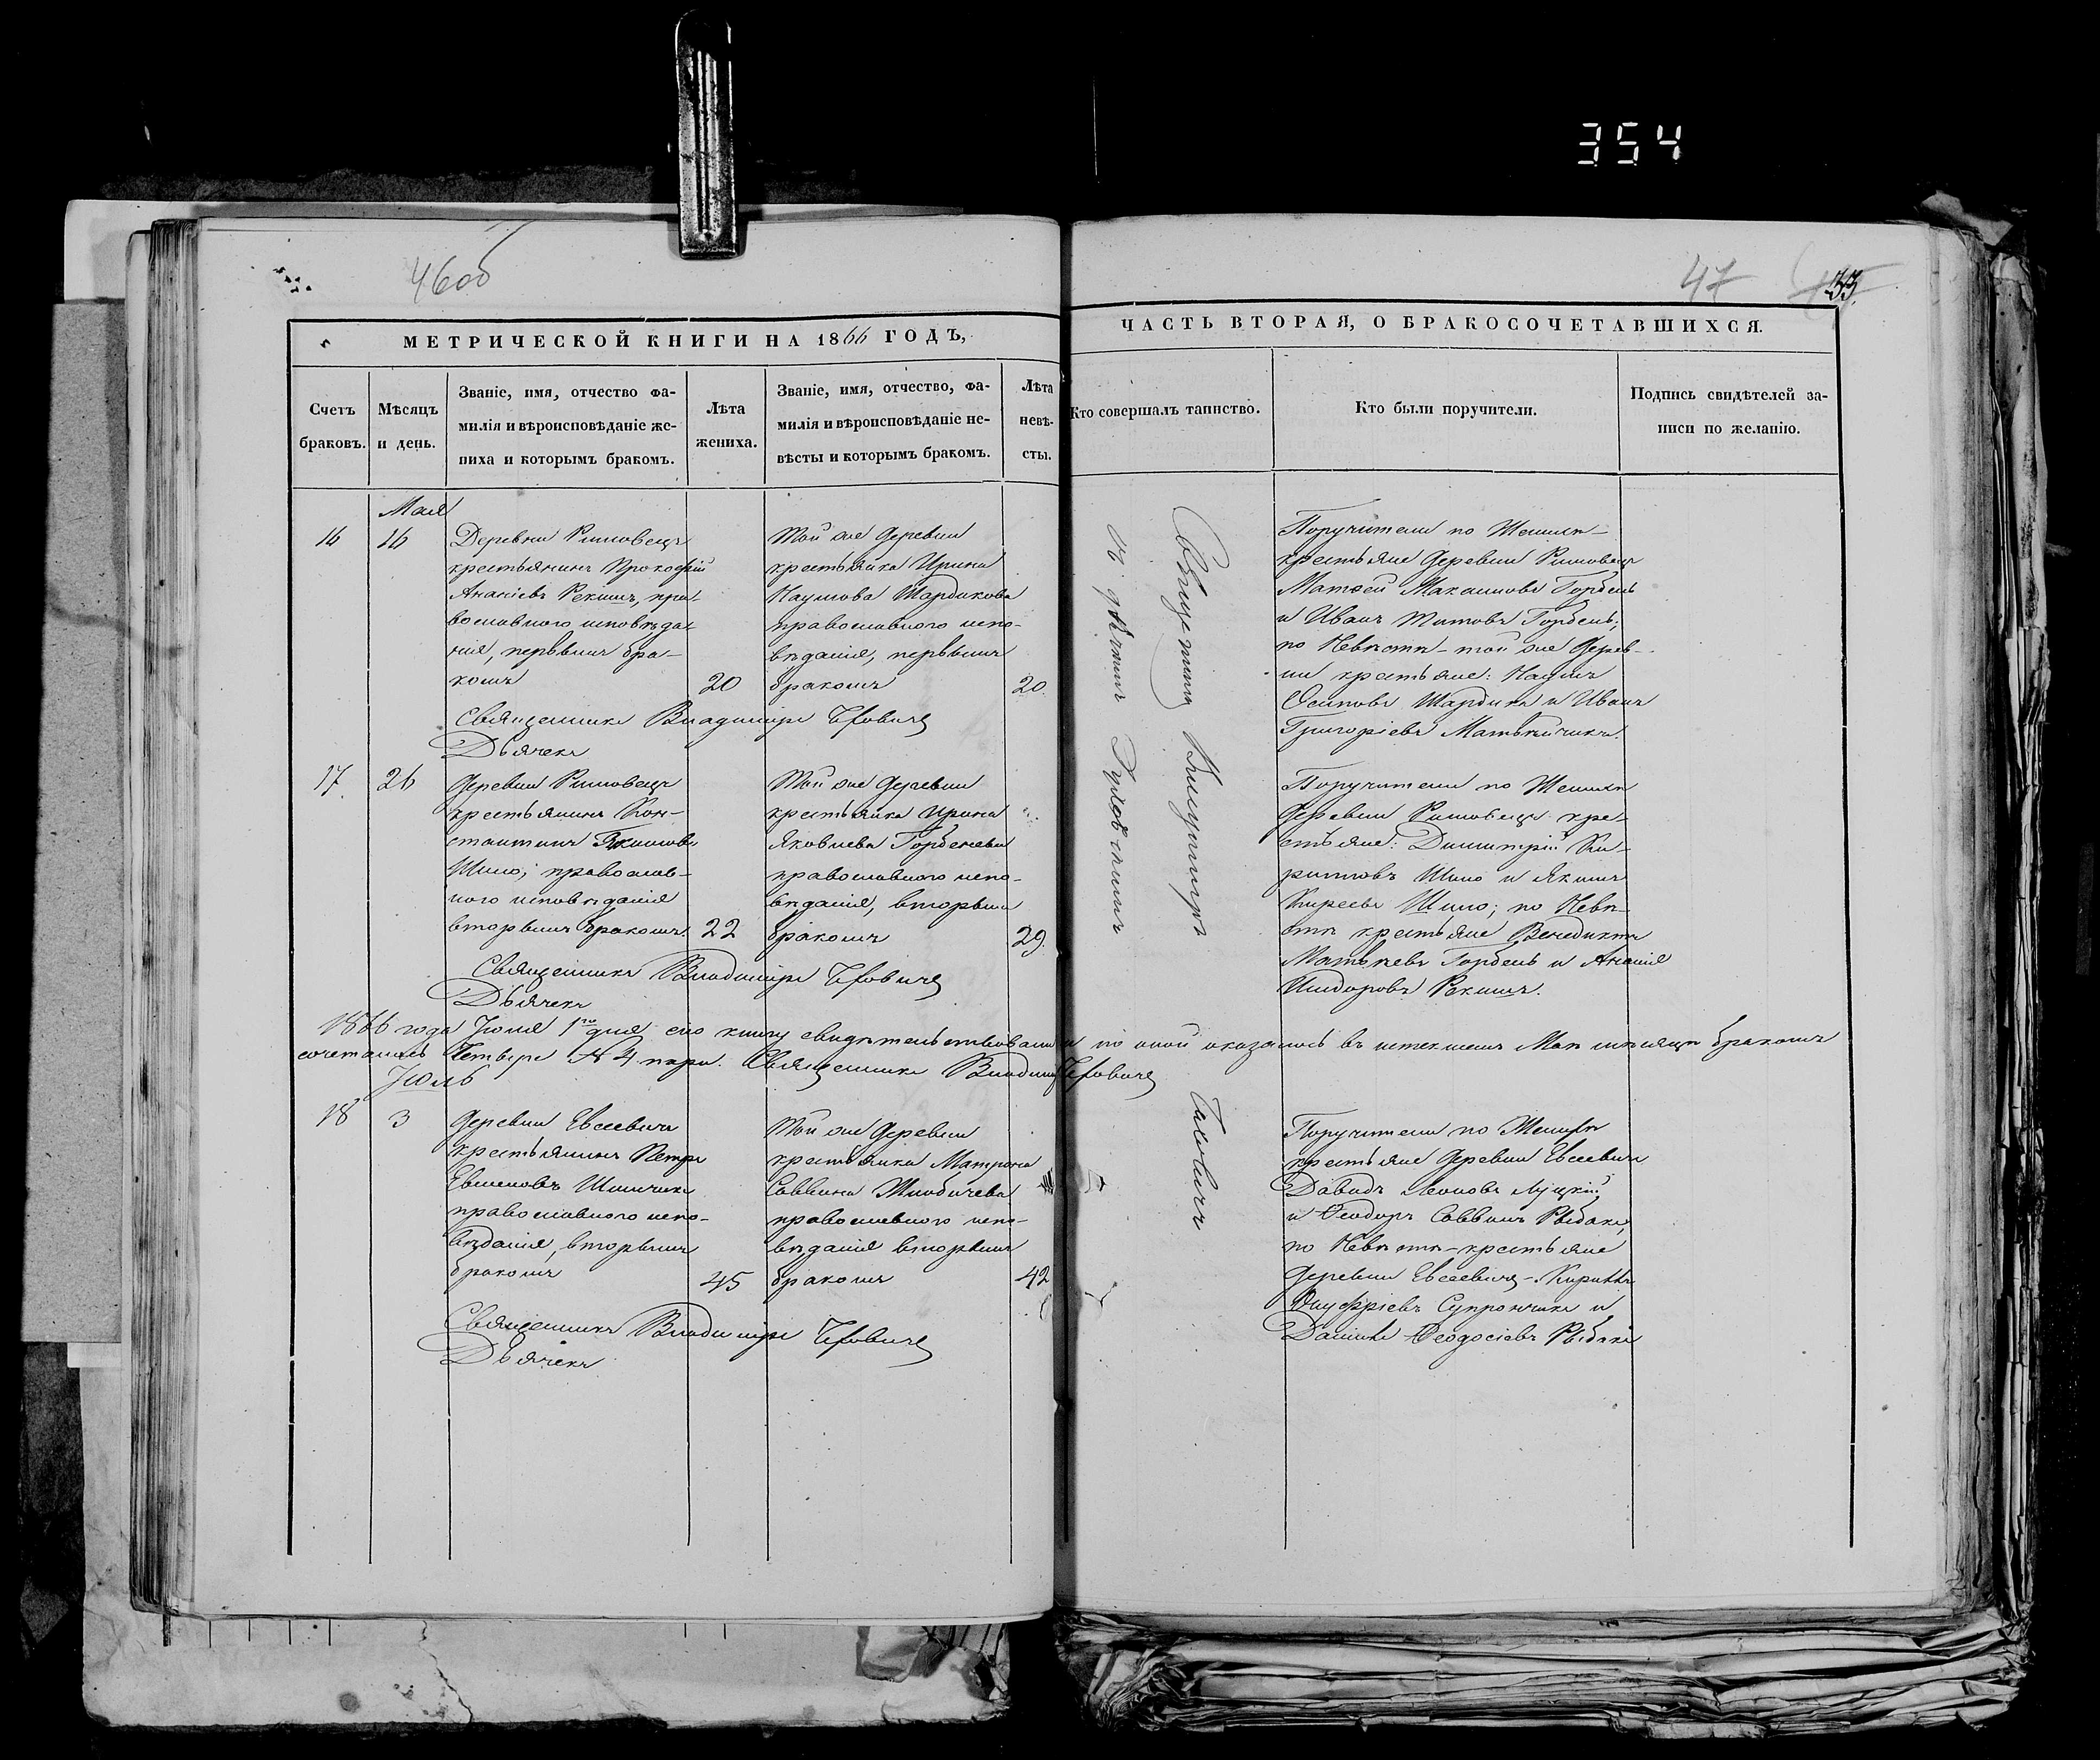 354
46об
47
33
МЕТРИЧЕСКОЙ КНИГИ НА 1866 ГОДЪ,
Счетъ браковъ.
Мѣсяцъ и день.
Званіе, имя, отчество фа-
милія и вѣроисповѣданіе же-
ниха и которымъ бракомъ.
Лѣта жениха.
Званіе, имя, отчество, фа-
милія и вѣроисповѣданіе не-
вѣсты и которымъ бракомъ.
Лѣта невѣ-
сты.
ЧАСТЬ ВТОРАЯ, О БРАКОСОЧЕТАВШИХСЯ.
Кто совершалъ таинство.
Кто были поручители.
Подпись свидѣтелей за-
писи по желанію.
Мая
16
16
Деревни Римовецъ
крестьянинъ Прокофій
Ананіевъ Рекишъ, пра-
вославнаго исповѣда-
нія, первымъ бра-
комъ
20
Той же деревни
крестьянка Ирина
Наумова Шардикова
православнаго испо-
вѣданія, первымъ
бракомъ
20
Священникъ Владиміръ
Дьячекъ
Поручители по Женихѣ
крестьяне деревни Римовецъ
Матѳей Максимовъ Горбель
и Иванъ Титовъ Горбель;
по Невѣстѣ - той же дерев-
ни крестьяне: Наумъ
Осиповъ Шардика и Иванъ
Григоріевъ
17
26
Деревни Римовецъ
крестьянинъ Кон-
стантинъ Якимовъ
Шило; православ-
наго исповѣданія
вторымъ бракомъ.
22
Той же деревни
крестьянка Ирина
Яковлева Горбелева
православнаго испо-
вѣданія, вторымъ
бракомъ
29
Священникъ Владиміръ
Дьячекъ
Поручители по Женихѣ
деревни Римовецъ кре-
стьяне: Димитрій Ки-
рилловъ Шило и Якимъ
Киреевъ Шило; по Невѣ-
стѣ крестьяне Венедиктъ
Матѳеевъ Горбель и Ананія
Исидоровъ Рекишъ.
1866 года Іюля 1го дня сію книгу свидѣтельствовали и по оной оказалось въ истекшемъ Маѣ мѣсяцѣ бракомъ
сочетались Четыре № 4 пары. Священникъ Владиміръ
Іюль
18
3
Деревни Евсеевичъ
крестьянинъ Петръ
православнаго испо-
вѣданія, вторымъ
бракомъ
45
Той же деревни
крестьянка Матрона
Саввина
православнаго испо-
вѣданія вторымъ
бракомъ
42
Священникъ Владиміръ
Дьячекъ
Поручители по Женихѣ
крестьяне деревни Евсеевичъ
Давидъ Леоновъ Луцкій
и Ѳеодоръ Саввинъ Рыбакъ,
по Невѣстѣ - крестьяне
деревни Евсеевичъ - Кириллъ
Онуфріевъ Супрончикъ и
Даніилъ Ѳеодосіевъ Рыбакъ
Священникъ Владиміръ